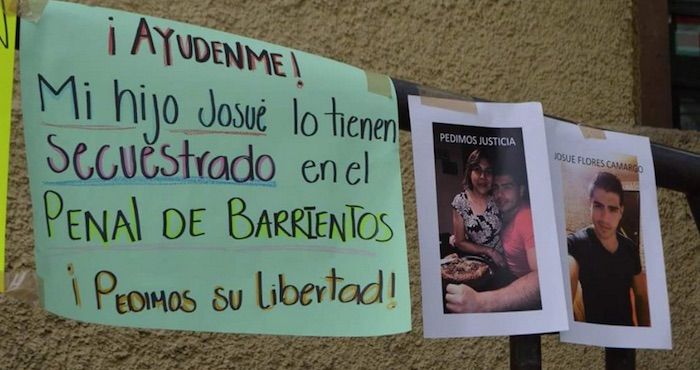 ¡AYUDENME!
Mi hijo Josué lo tienen
Secuestrado en el
PENAL DE BARRIENTOS
¡PEDIMOS SU LIBERTAD!
PEDIMOS JUSTICIA
JOSUE FLORES CAMARGO